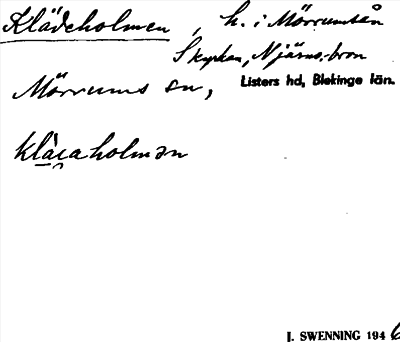 Klädeholmen, h. i Mörrumsån
Skyrkan, Njärns-bron
Mörrums sn, Listers hd, Blekinge län.
klàɛaholmən
J. SWENNING 1946